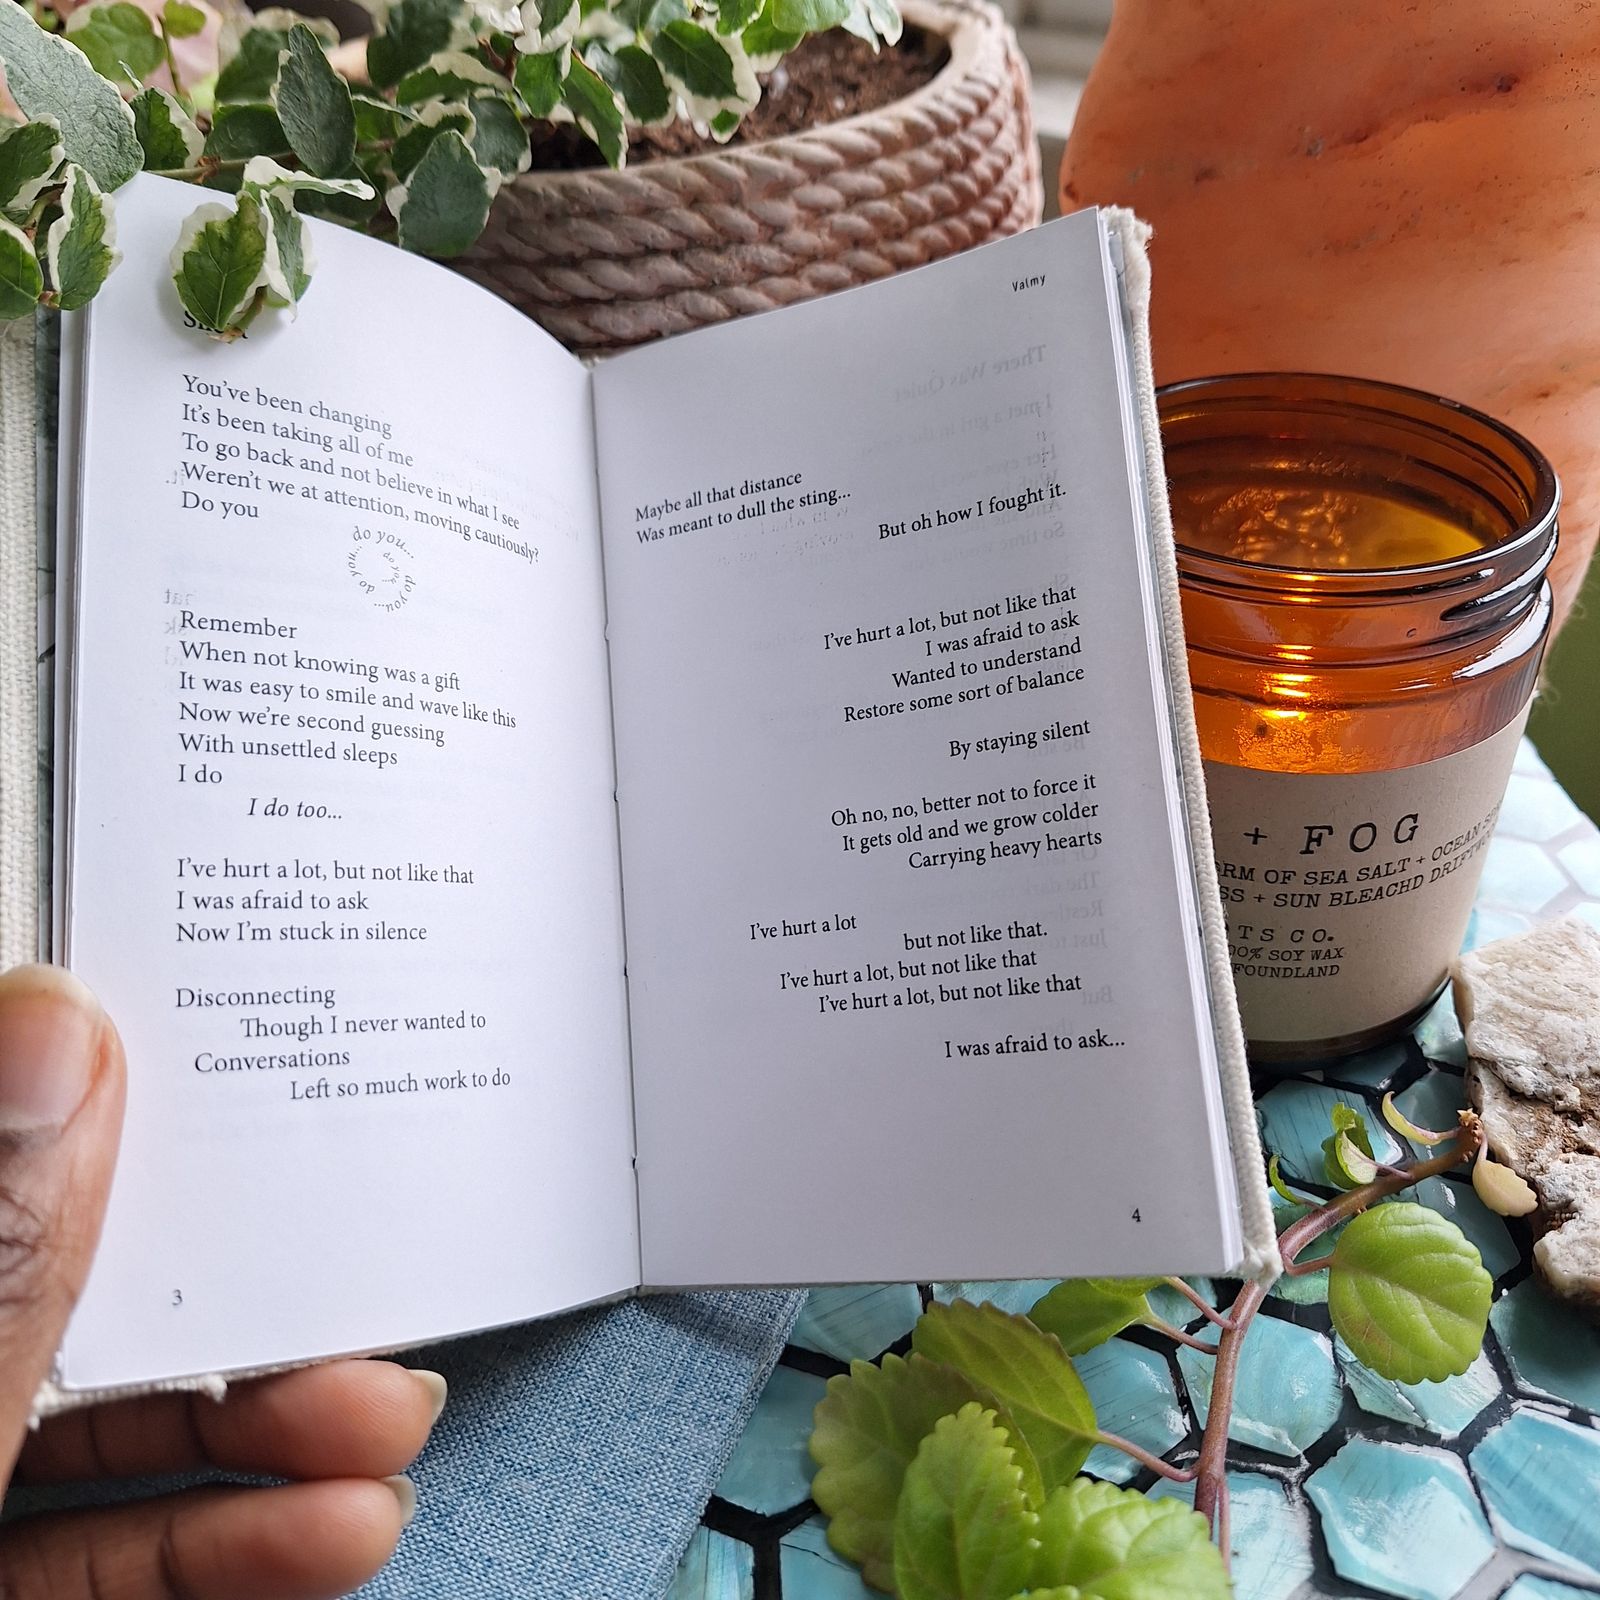 You've been changing
It's been taking all of me
To go back and not believe in what I see
Weren't we at attention, moving cautiously?
Do you
do you... do you... do you...
do you...
Remember
When not knowing was a gift
It was easy to smile and wave like this
Now we're second guessing
With unsettled sleeps
I do
I do too...
I've hurt a lot, but not like that
I was afraid to ask
Now I'm stuck in silence
Disconnecting
Though I never wanted to
Conversations
Left so much work to do
3
Valmy
Maybe all that distance
Was meant to dull the sting...
But oh how I fought it.
I've hurt a lot, but not like that
I was afraid to ask
Wanted to understand
Restore some sort of balance
By staying silent
Oh no, no, better not to force it
It gets old and we grow colder
Carrying heavy hearts
I've hurt a lot
but not like that.
I've hurt a lot, but not like that
I've hurt a lot, but not like that
I was afraid to ask...
4
+ FOG
OF SEA SALT + OCEAN
+ SUN BLEACHD
CO.
SOY WAX